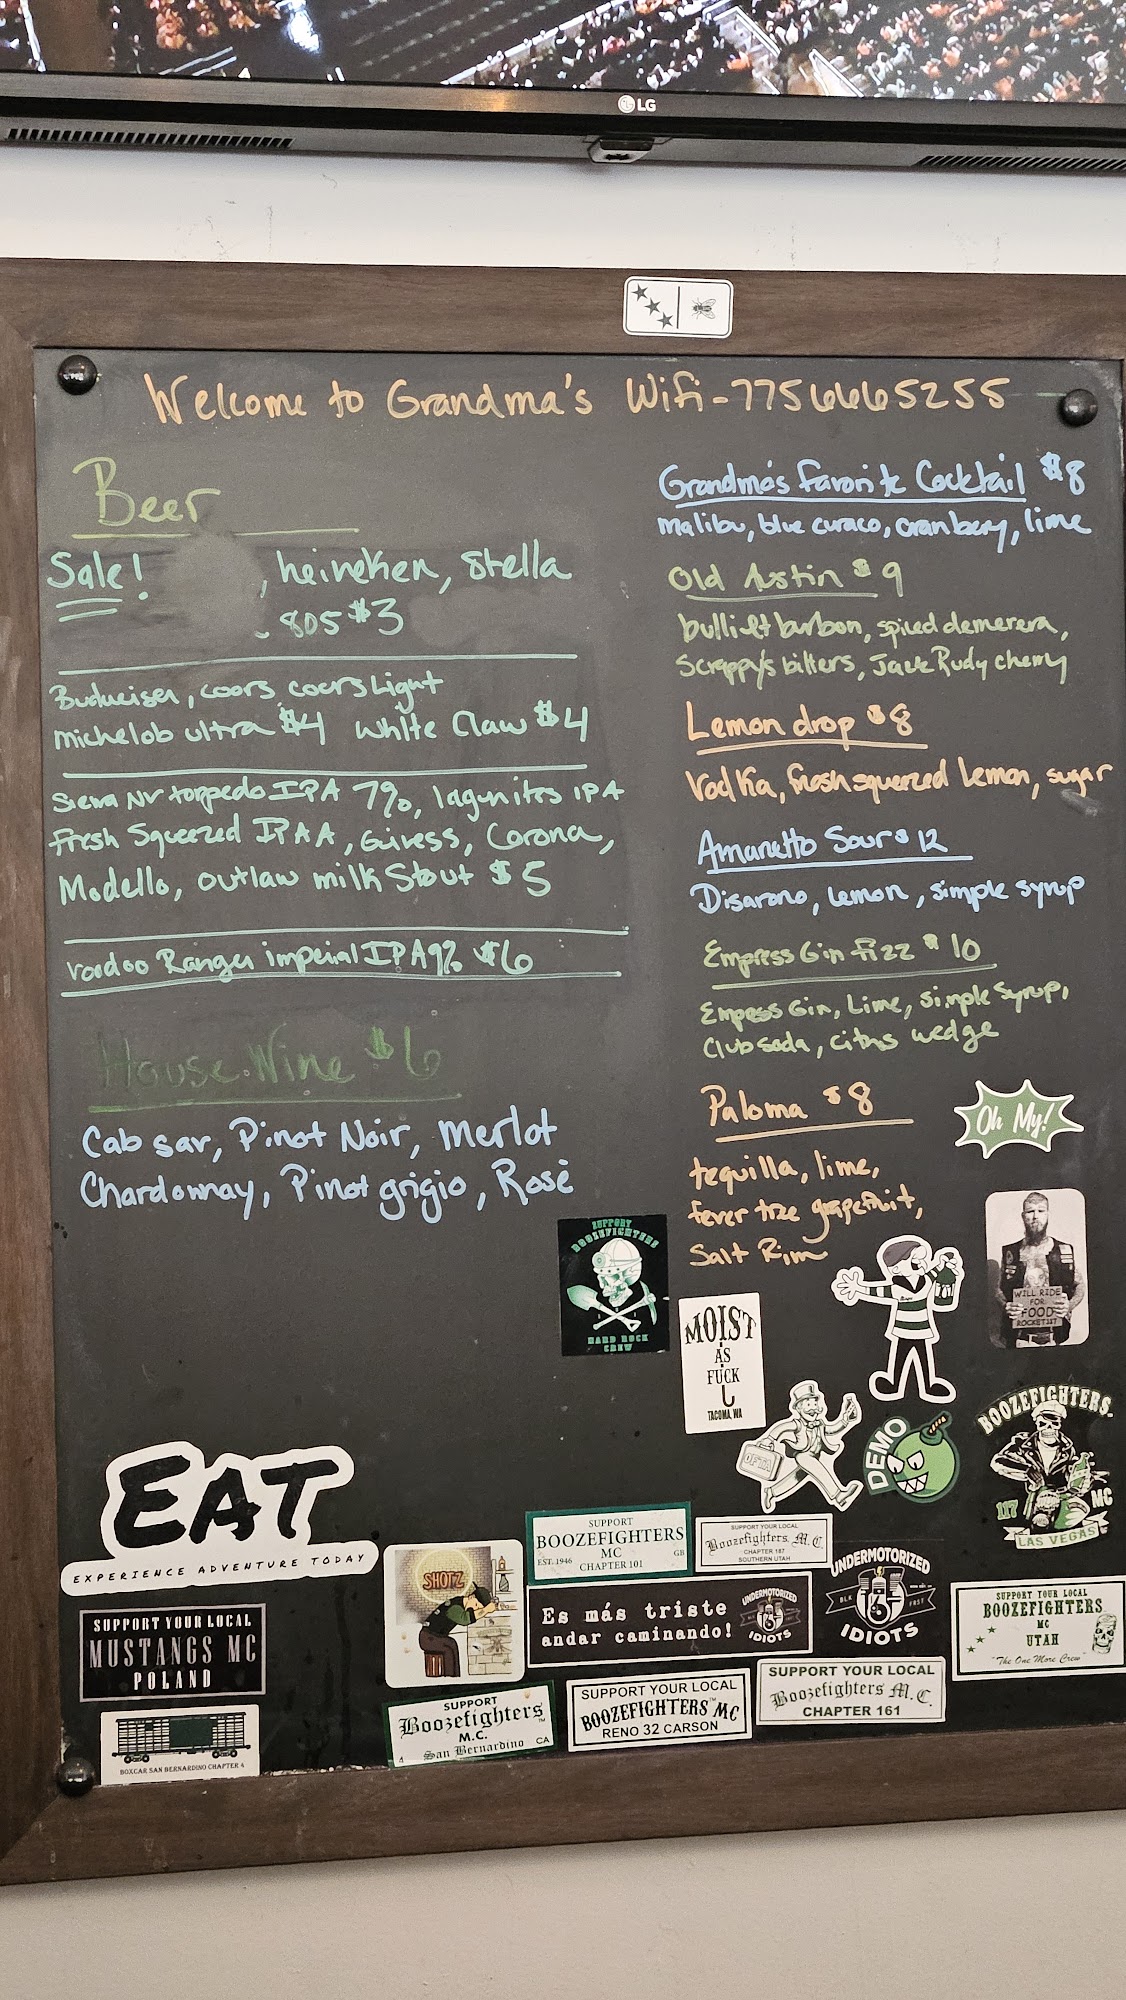 LG
Welcome to Grandma's Wifi-7756665255
Beer
Sale! , heineken, Stella
805 $3
Budweiser, coors, coors Light
michelob ultra $4 White Claw $4
Sierra NV torpedo IPA 7%, lagunitas IPA
Fresh Squeezed IPAA, Guiness, Corona,
Modello, outlaw milk Stout $5
Voodoo Ranger imperial IPA 9% $6
House Wine $6
Cab sav, Pinot Noir, Merlot
Chardonnay, Pinot grigio, Rosé
Grandma's Favorite Cocktail $8
malibu, blue curaco, cranberry, lime
Old Austin $9
bulliett burbon, spiced demerera,
Scrappy's bitters, Jack Rudy cherry
Lemon drop $8
Vodka, fresh squeezed Lemon, sugar
Amaretto Sour $12
Disarono, Lemon, simple syrup
Empress Gin fizz $10
Empress Gin, Lime, Simple Syrup,
Club soda, citrus wedge
Paloma $8
tequilla, lime,
fever tree grapefruit,
Salt Rim
Oh My!
WILL RIDE
FOR
FOOD
ROCKET117
SUPPORT
BOOZEFIGHTERS
HARD ROCK
CREW
MOIST
AS
FUCK
TACOMA, WA
OFTA
DEMO
BOOZEFIGHTERS
117 MC
LAS VEGAS
EAT
EXPERIENCE ADVENTURE TODAY
SHOTZ
SUPPORT
BOOZEFIGHTERS
MC
EST. 1946 CHAPTER 101 GB
SUPPORT YOUR LOCAL
Boozefighters M.C.
CHAPTER 187
SOUTHERN UTAH
Es más triste
andar caminando!
UNDERMOTORIZED
IDIOTS
UNDERMOTORIZED
BLK FRST
IDIOTS
SUPPORT YOUR LOCAL
BOOZEFIGHTERS
MC
UTAH
"The One More Crew"
SUPPORT YOUR LOCAL
MUSTANGS MC
POLAND
BOXCAR SAN BERNARDINO CHAPTER 4
SUPPORT
Boozefighters
M.C.
4 San Bernardino CA
SUPPORT YOUR LOCAL
BOOZEFIGHTERS MC
RENO 32 CARSON
SUPPORT YOUR LOCAL
Boozefighters M.C.
CHAPTER 161